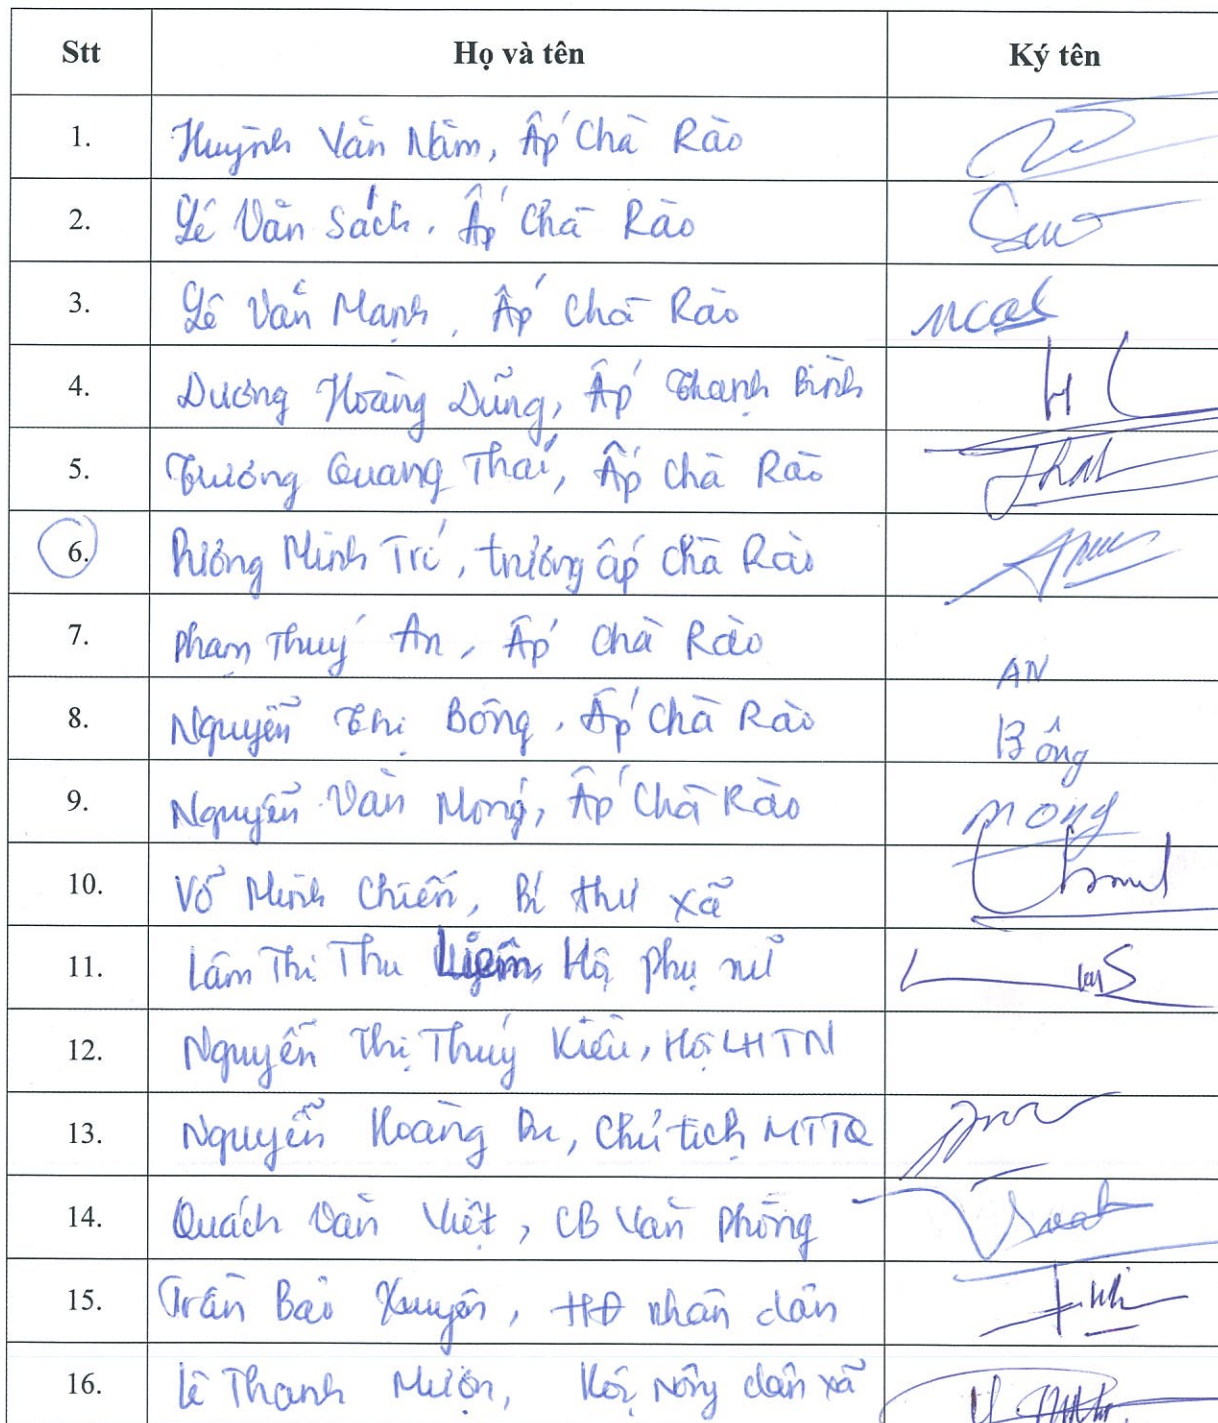 Stt Họ và tên Ký tên
1. Huỳnh Văn Năm, Ấp Chà Rào
2. Lê Văn Sách, Ấp Chà Rào
3. Lê Văn Mạnh, Ấp Chà Rào
4. Dương Hoàng Dũng, Ấp Thạnh Bình
5. Trương Quang Thái, Ấp Chà Rào
6. Minh Trí, trưởng ấp Chà Rào
7. Phạm Thuý An, Ấp Chà Rào AN
8. Nguyễn Thị Bông, Ấp Chà Rào Bông
9. Nguyễn Văn Mong, Ấp Chà Rào mong
10. Võ Minh Chiến, Bí thư xã
11. Lâm Thị Thu Hội phụ nữ
12. Nguyễn Thị Thuý Kiều, Hội LHTN
13. Nguyễn Hoàng Chủ tịch MTTQ
14. Quách Văn Việt, CB Văn phòng
15. Trần Bảo Xuyên, HĐ nhân dân
16. Lê Thanh Mượn, Hội Nông dân xã